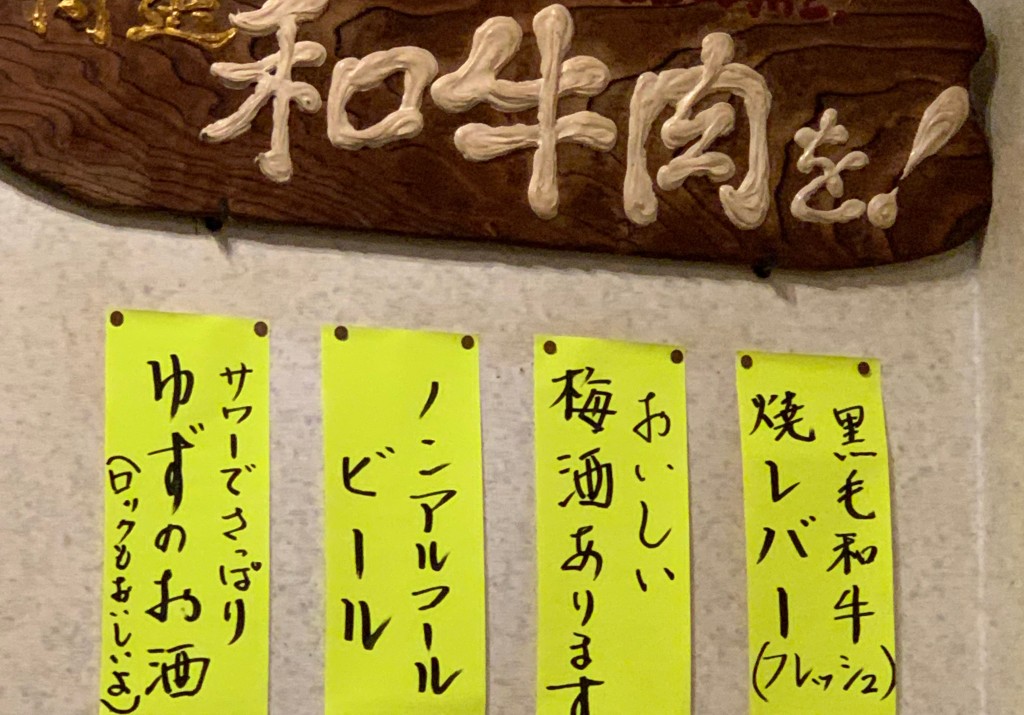 和牛肉を！
黒毛和牛
焼レバー
(フレッシュ)
おいしい
梅酒あります
ノンアルコール
ビール
サワーでさっぱり
ゆずのお酒
(ロックもおいしいよ)